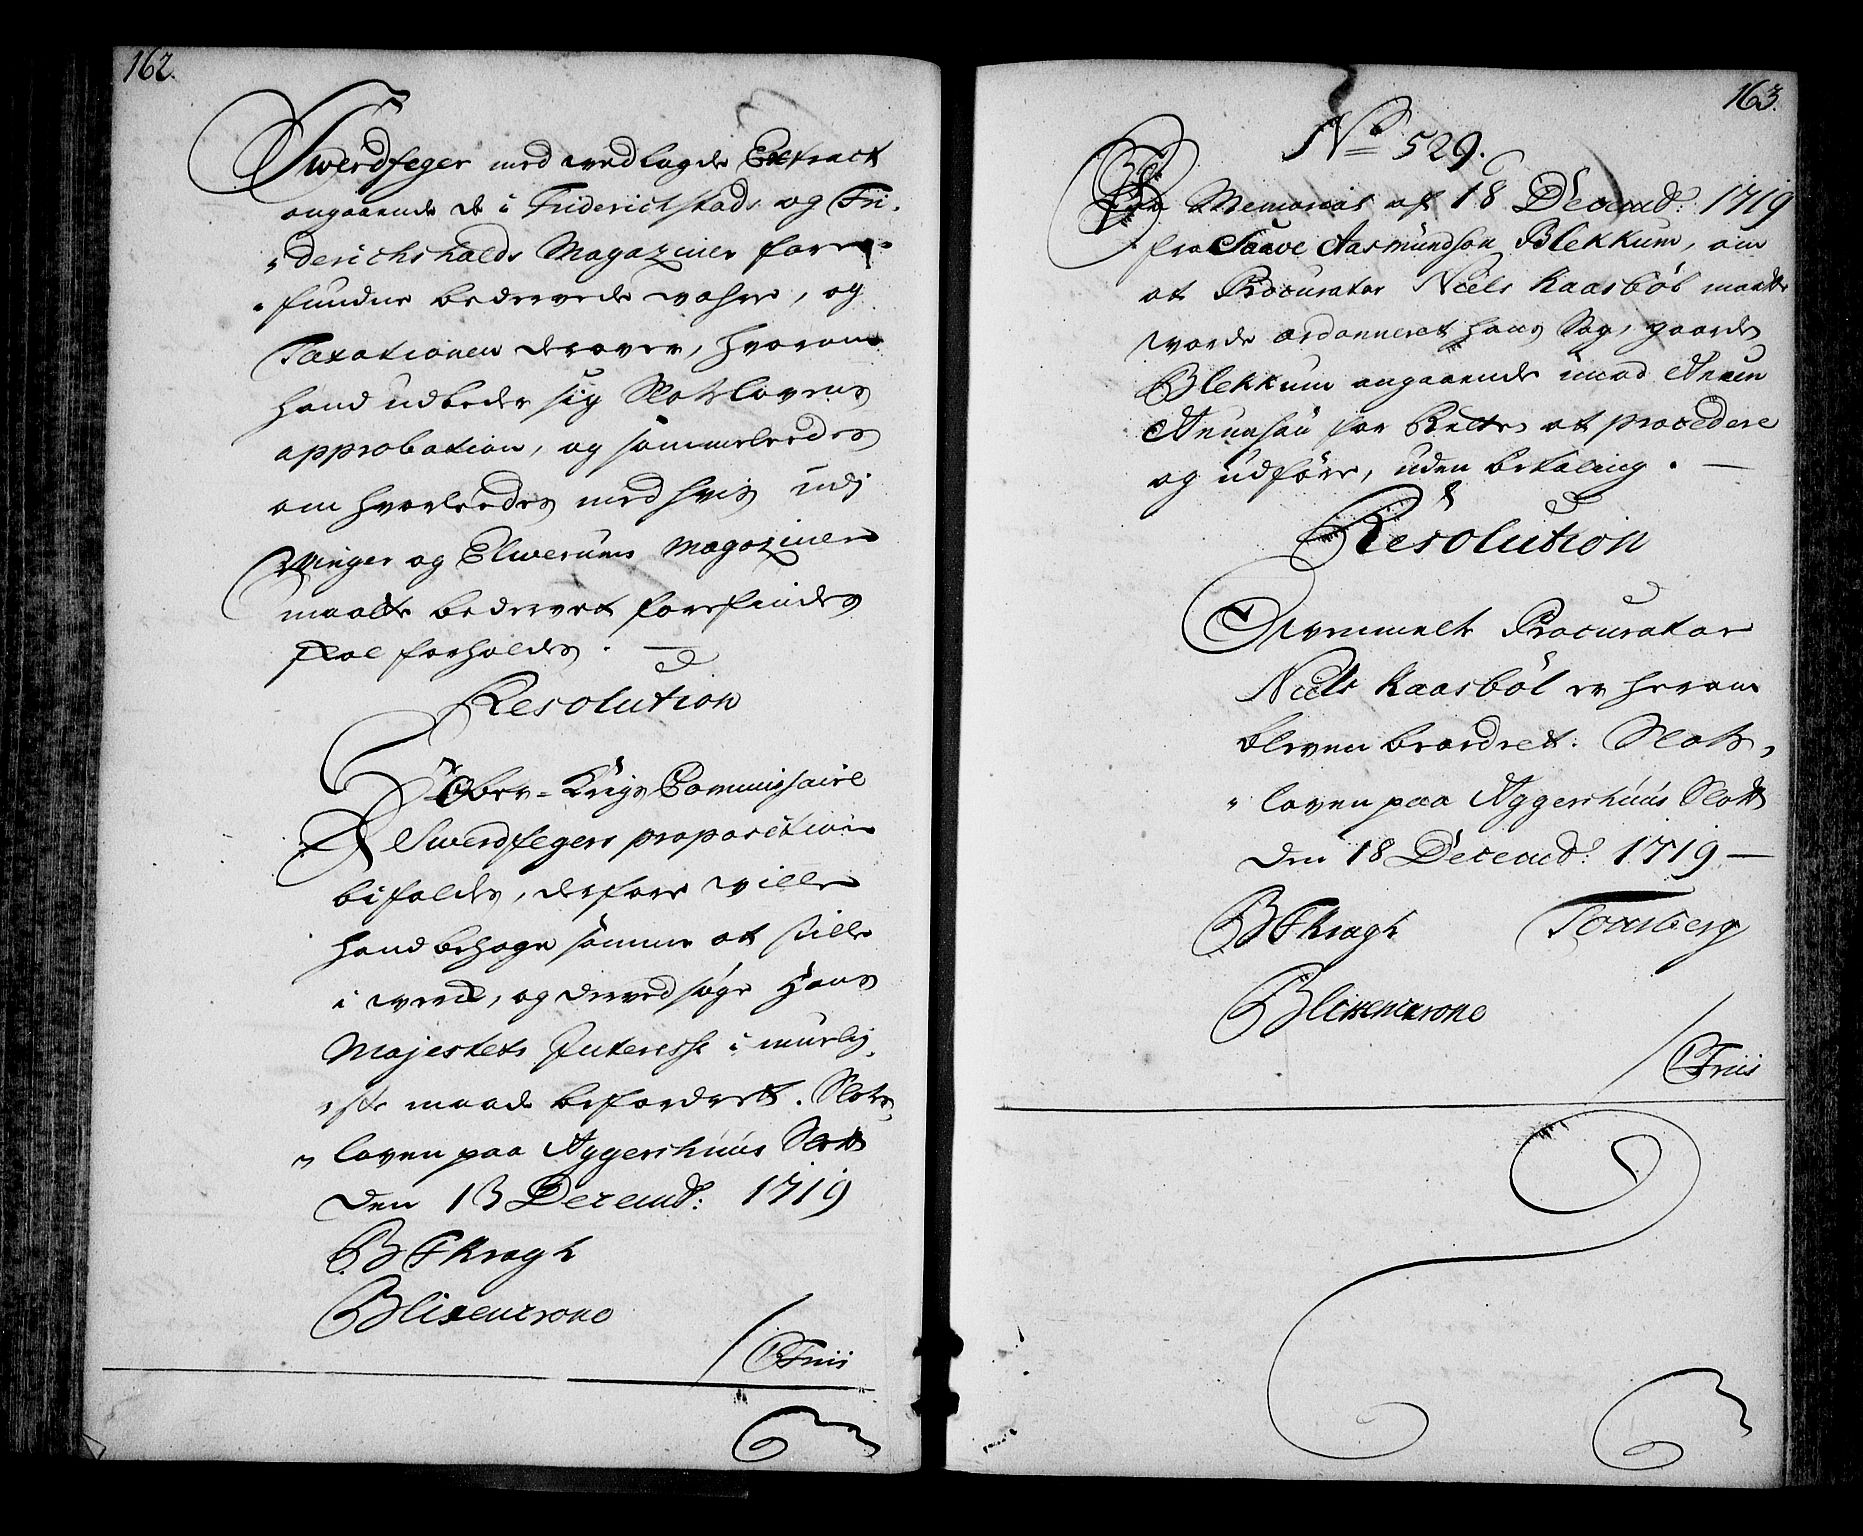 162.
Swerdfeger med vedlagde Extract
angaaende de i Friderichstads og Fri-
derichshalds Magaziner forre-
fundne bedervede vahre, og
Taxationen derover, hvorom
hand udbeder sig Slotslovens
approbation, og sammeleedes
om hvorleedes med hvis udj
Winger og Elwerums Magaziner
maatte bedervet forefindes
skal forholdes.
Resolution
Hr Ober-Krigs Commissaire
Swerdfegers proposition
bifaldes, derfore ville
hand behage samme at stille
i verck, og derved søge Hans
Majestets Interesse i muelig-
ste maade befordrett. Slots-
loven paa Aggershuus Slott
Den 13 Decembr: 1719
B F Kragh
Blixencrone
/ C Friis
163.
No 529.
Memorial af 18 Decembr: 1719
fra Taave Aasmundson Blekkum, om
at Procurator Niels Kaasbøl maatte
vorde ordonneret hans Sag, gaarden
Blekkum angaaende imod Anven
for Rette at procedere
og udføre, uden betaling.
Resolution
Bemmelte Procurator
Niels Kaasbøl er herom
bleven beordret. Slots-
loven paa Aggershuus Slott
Den 18 Decembr: 1719
B F Kragh Tonsberg
Blixencrone
/ C Friis